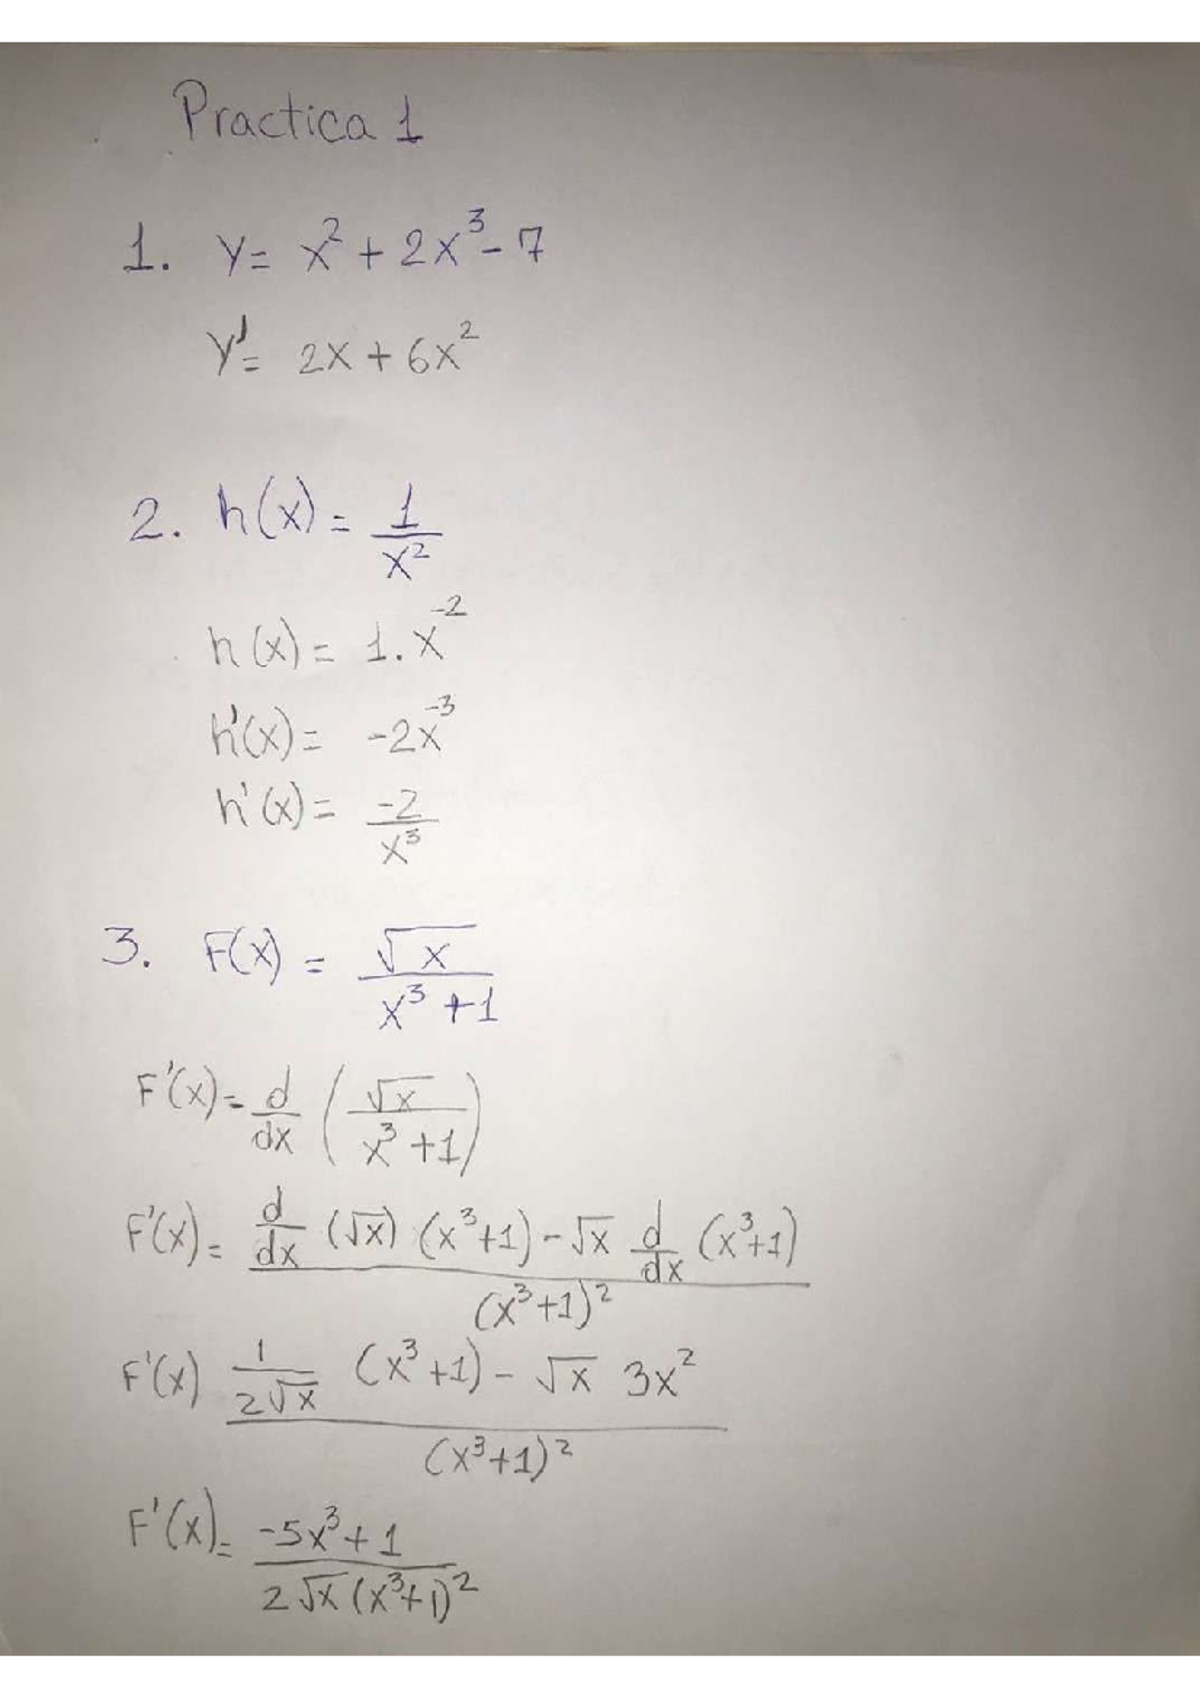 Practica 1
1. y= x² + 2x³ - 7
y'= 2x + 6x²
2. h(x) = 1/x²
h(x) = 1. x⁻²
h'(x) = -2x⁻³
h'(x) = -2/x³
3. F(x) = √x/(x³ + 1)
F'(x) = d/dx (√x/(x³ + 1))
F'(x) = (d/dx (√x) (x³+1) - √x d/dx (x³+1))/(x³+1)²
F'(x) (1/(2√x) (x³+1) - √x 3x²)/(x³+1)²
F'(x) = (-5x³ + 1)/(2√x (x³+1)²)